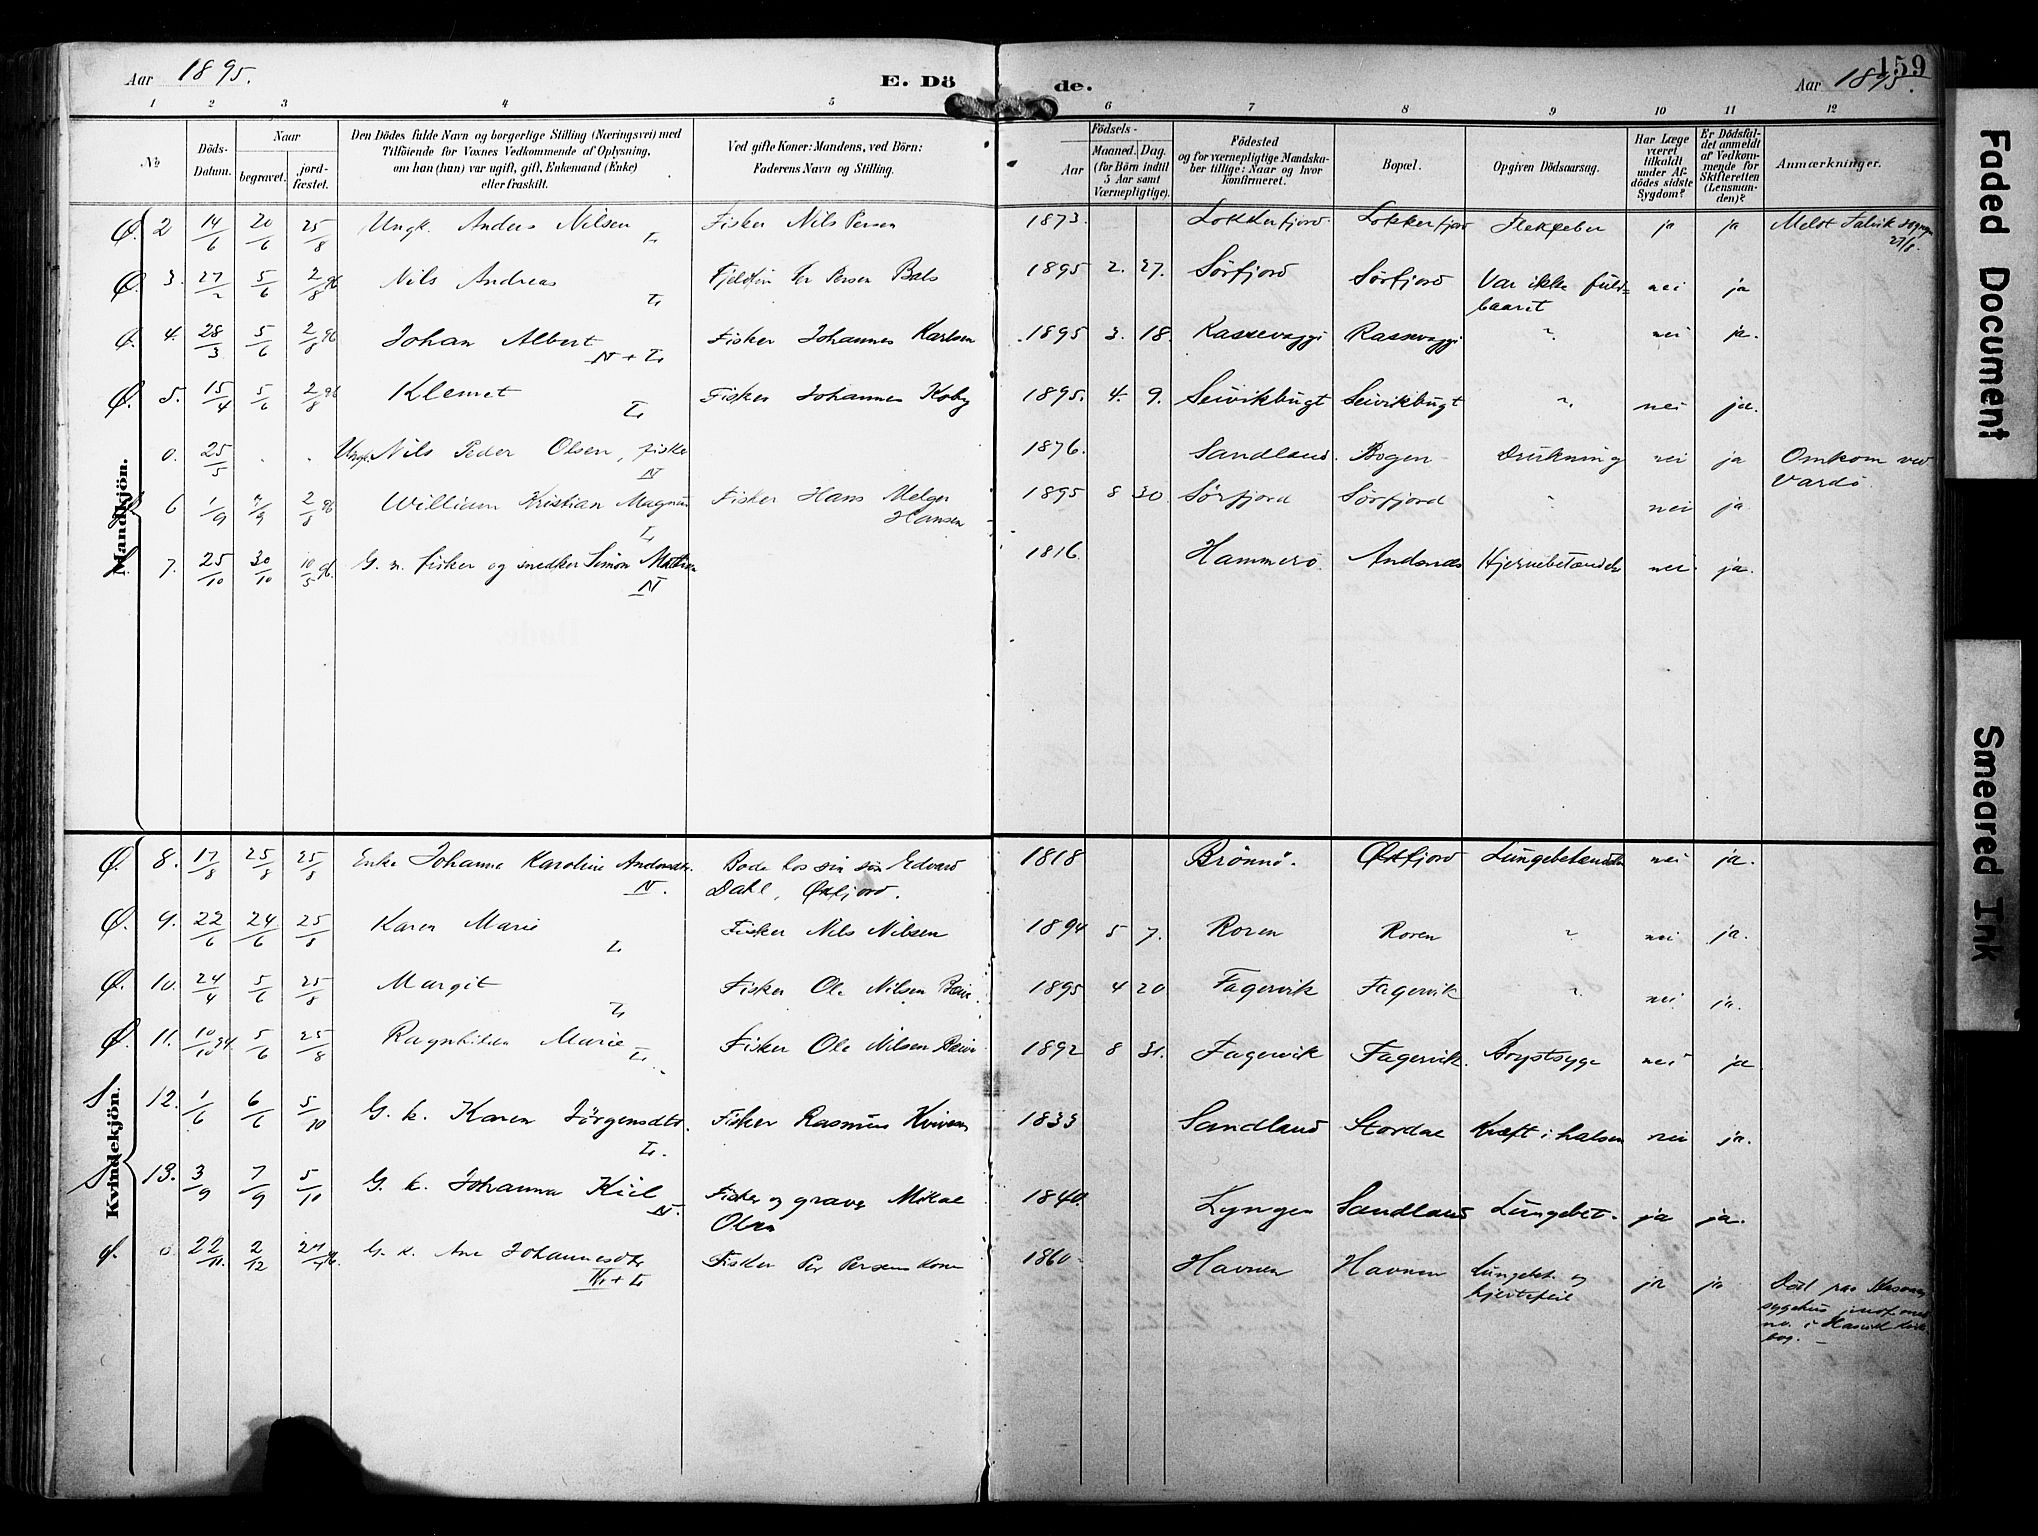 Aar 1895.
E. Dö
de.
Aar 1895.
159
1 2 3 4 5 6 7 8 9 10 11 12
No
Döds-Datum.
Naar
begravet.
jord-fæstet.
Den Dödes fulde Navn og borgerlige Stilling (Næringsvei) med
Tilföiende for Voxnes Vedkommende af Oplysning,
om han (hun) var ugift, gift, Enkemand (Enke)
eller fraskilt.
Ved gifte Koner: Mandens, ved Börn:
Faderens Navn og Stilling.
Födsels-
Aar
Maaned. Dag.
(for Börn indtil
5 Aar samt
Værnepligtige).
Födested
og for værnepligtige Mandska-
ber tillige: Naar og hvor
konfirmeret.
Bopæl.
Opgiven Dödsaarsag.
Har Læge
været
tilkaldt
under Af-
dödes sidste
Sygdom?
Er Dödsfal-
det anmeldt
af Vedkom-
mende for
Skifteretten
(Lensman-
den)?
Anmærkninger.
Mandkjön.
Ø. 2 14/6 20/6 25/8 Ungk. Anders Nilsen L. Fisker Nils Persen 1873. Lokkerfjord Lokkerfjord Flekfeber ja ja Meldt
Ø. 3. 27/2 5/6 2/8 96 Nils Andreas L. Fjeldfin Per Persen Bals 1895 2. 27. Sörfjord Sörfjord Var ikke fuld=
baaret nei ja
Ø. 4. 28/3 5/6 2/8 96 Johan Albert N + L. Fisker Johannes Karlsen 1895 3. 18. Rassevaggi Rassevaggi " nei ja.
Ø. 5. 15/4 5/6 2/8 96 Klemet L. Fisker Johannes Koby 1895. 4. 9. Seivikbugt Seivikbugt " nei ja.
0. 25/5 . . Ungk. Nils Peder Olsen, fisker N 1876. Sandland Bogen Drukning nei ja Omkom ved
Vardö.
6 1/9 /9 2/8 96 William Kristian Magnus L. Fisker Hans Melger
Hansen 1895 8 30. Sörfjord Sörfjord " nei ja
7. 25/10 30/10 10/5 96. G. m. fisker og snedker Simon N 1816. Hammerö. Andsnæs Hjernebetændelse nei ja.
Kvindekjön.
Ø. 8. 17/8 25/8 25/8 Enke Johanna Karoline Andersdtr. N. Bode hos sin sön Edvard
Dahl, Öxfjord. 1818 Brönnö. Öxfjord Lungebetændelse nei ja.
Ø. 9. 22/6 24/6 25/8 Karen Marie L. Fisker Nils Nilsen 1894 5 7. Roren Roren " nei ja.
Ø. 10. 24/4 5/6 25/8 Margit L. Fisker Ole Nilsen 1895 4 20 Fagervik Fagervik " nei ja.
Ø. 11. 10/10 94. 5/6 25/8 Ragnhilda Marie L. Fisker Ole Nilsen 1892 8 31. Fagervik Fagervik. Brystsyge nei ja
S 12. 1/6 6/6 5/10 G. k. Karen Jörgensdtr. L. Fisker Rasmus 1833 Sandland Stordal Kræft i halsen nei ja.
S 13. 3/9 7/9 5/10 G. k. Johanna Kiil N. Fisker og graver Mikal
Olsen 1840. Lyngen Sandland Lungebet. ja ja.
0. 22/11. 2/12 G. k. Ane Johannesdtr + L. Fisker Per Persens kone 1860. Havnen Havnen Lungebet. og
hjertefeil ja ja Död paa
sygehus
i Hasvik
bog.
Faded Document
Smeared Ink